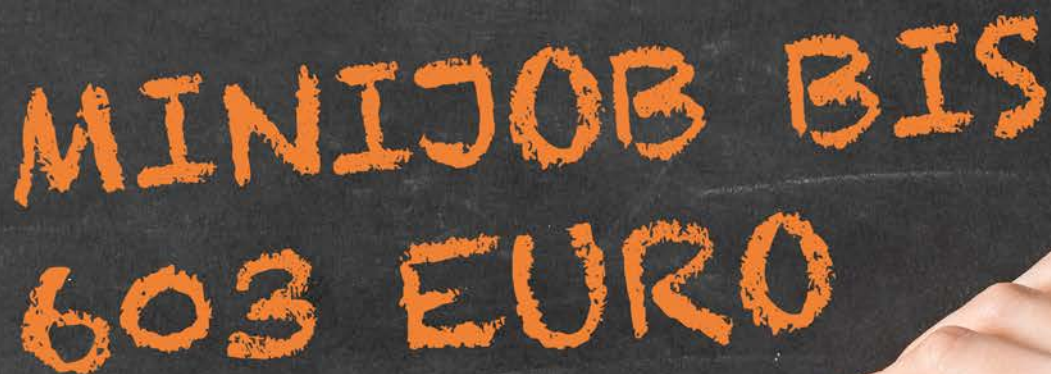 MINIJOB BIS
603 EURO